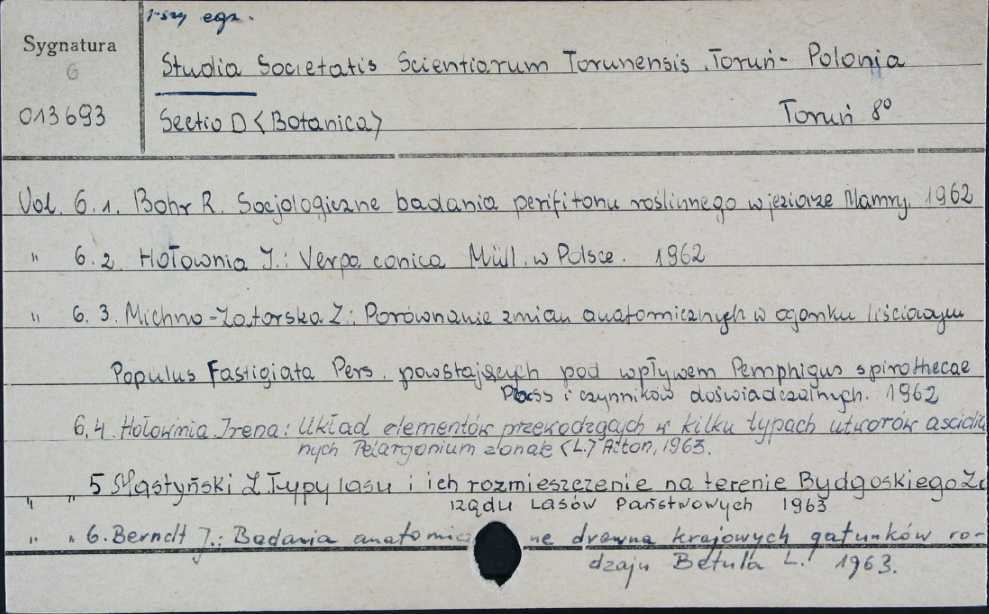 1-szy egz.
Sygnatura
6
013693
Studia Societatis Scientiarum Torunensis. Toruń - Polonia
Sectio D <Botanica> Toruń 8°
Vol. 6.1. Bohr R. Socjologiczne badania perifitonu roślinnego w jeziorze Mamry. 1962
" 6.2. Hołownia J.: Verpa conica Müll. w Polsce. 1962
" 6.3. Michno-Zatorska Z.: Porównanie zmian anatomicznych w ogonku liściowym
Populus Fastigiata Pers. powstających pod wpływem Pemphigus spirothecae
Pass i czynników doświadczalnych. 1962
6.4. Hołownia Irena: Układ elementów przewodzących w kilku typach utworów ascidial
nych Pelargonium zonale (L.) Aiton, 1963.
" " 5 Mąstyński Z. Typy lasu i ich rozmieszczenie na terenie Bydgoskiego Za
rządu Lasów Państwowych 1963
" " 6. Berndt J.: Badania anatomiczne drewna krajowych gatunków ro-
dzaju Betula L. 1963.